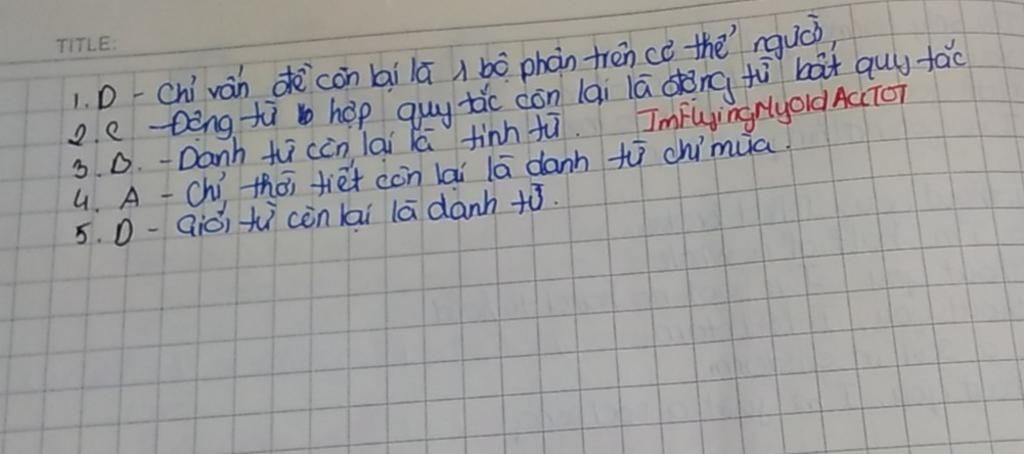 TITLE:
1. D - Chỉ vấn đề còn lại là 1 bộ phận trên cơ thể người
2. C - Động từ hợp quy tắc còn lại là động từ bất quy tắc
ImFlyingMyOldAccTOT
3. D. - Danh từ còn lại là tính từ.
4. A - Chỉ thời tiết còn lại là danh từ chỉ mùa.
5. D - Giới từ còn lại là danh từ.